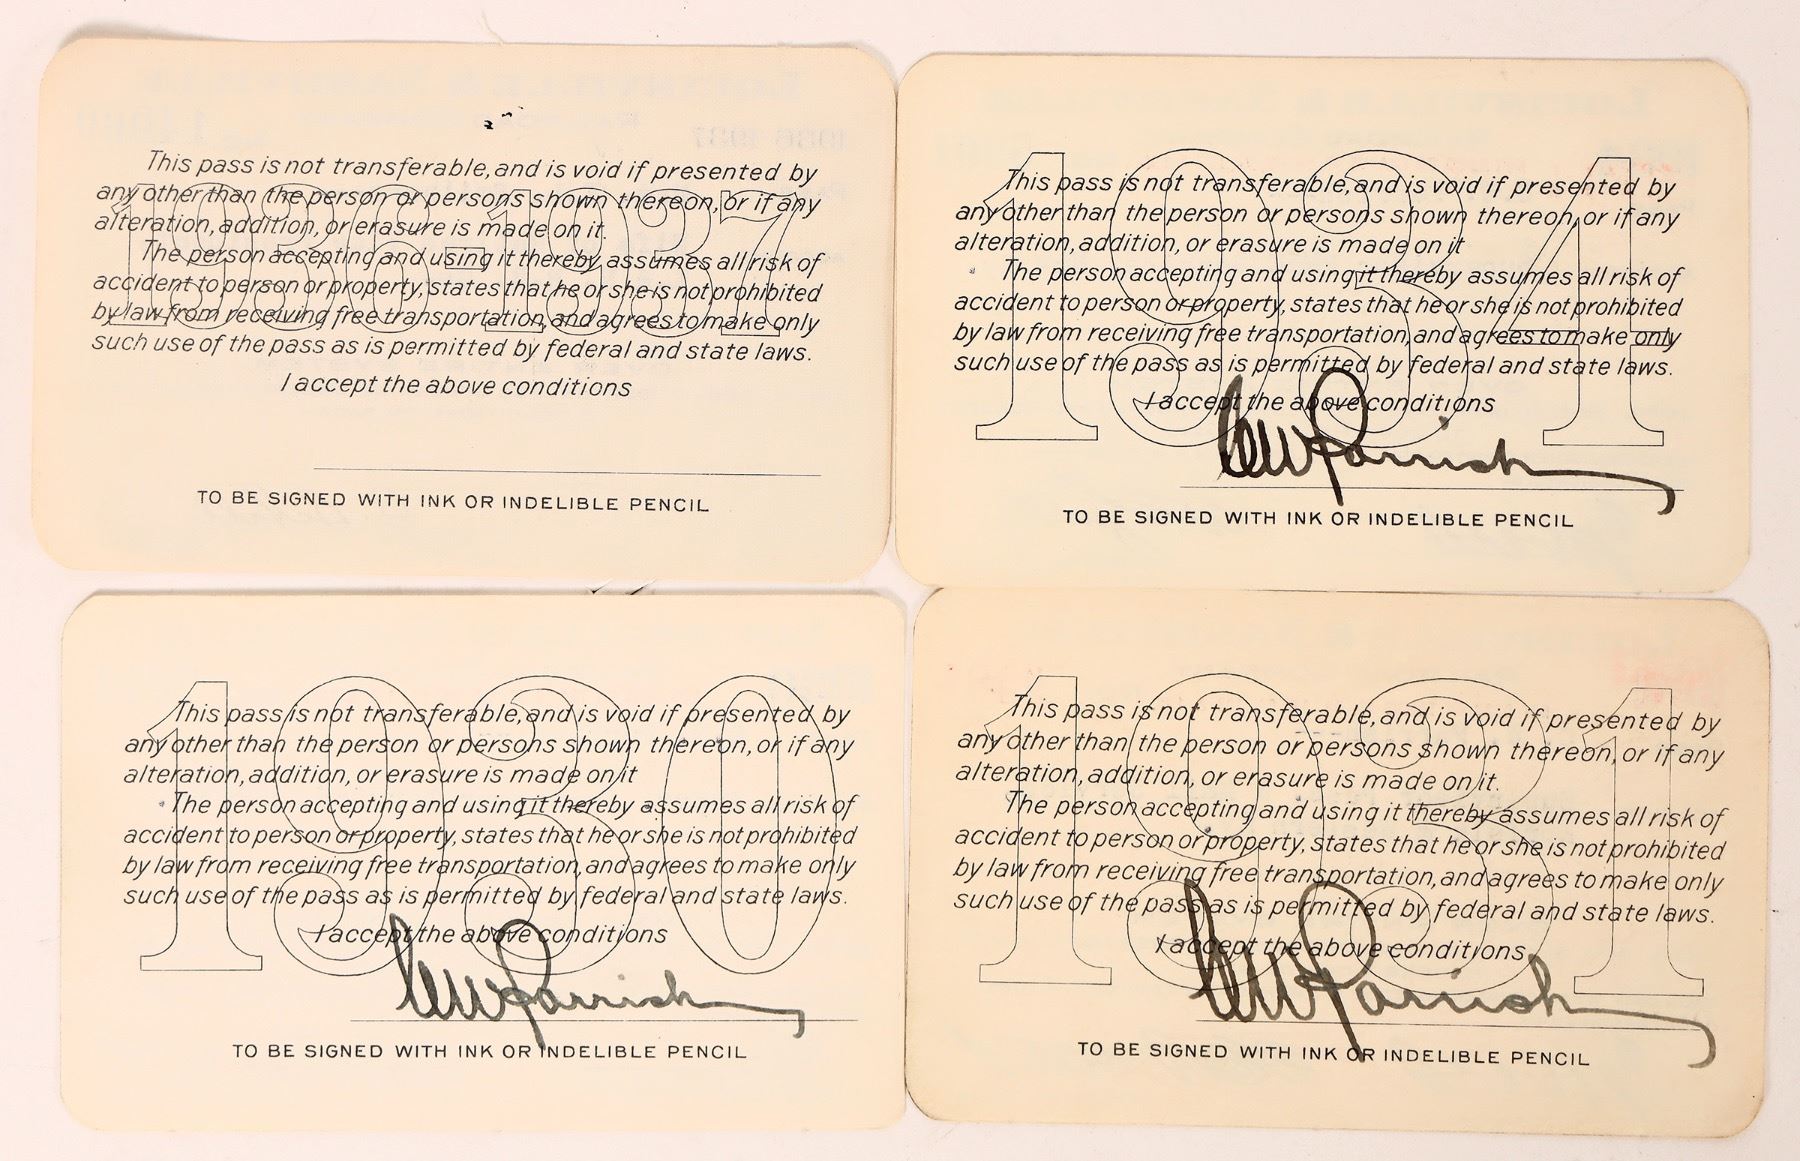 1936-1937
This pass is not transferable, and is void if presented by
any other than the person or persons shown thereon, or if any
alteration, addition, or erasure is made on it.
The person accepting and using it thereby assumes all risk of
accident to person or property, states that he or she is not prohibited
by law from receiving free transportation, and agrees to make only
such use of the pass as is permitted by federal and state laws.
I accept the above conditions
TO BE SIGNED WITH INK OR INDELIBLE PENCIL
1934
This pass is not transferable, and is void if presented by
any other than the person or persons shown thereon, or if any
alteration, addition, or erasure is made on it
The person accepting and using it thereby assumes all risk of
accident to person or property, states that he or she is not prohibited
by law from receiving free transportation, and agrees to make only
such use of the pass as is permitted by federal and state laws.
I accept the above conditions
Parrish
TO BE SIGNED WITH INK OR INDELIBLE PENCIL
1930
This pass is not transferable, and is void if presented by
any other than the person or persons shown thereon, or if any
alteration, addition, or erasure is made on it
The person accepting and using it thereby assumes all risk of
accident to person or property, states that he or she is not prohibited
by law from receiving free transportation, and agrees to make only
such use of the pass as is permitted by federal and state laws.
I accept the above conditions
Parrish
TO BE SIGNED WITH INK OR INDELIBLE PENCIL
1931
This pass is not transferable, and is void if presented by
any other than the person or persons shown thereon, or if any
alteration, addition, or erasure is made on it.
The person accepting and using it thereby assumes all risk of
accident to person or property, states that he or she is not prohibited
by law from receiving free transportation, and agrees to make only
such use of the pass as is permitted by federal and state laws.
I accept the above conditions
Parrish
TO BE SIGNED WITH INK OR INDELIBLE PENCIL